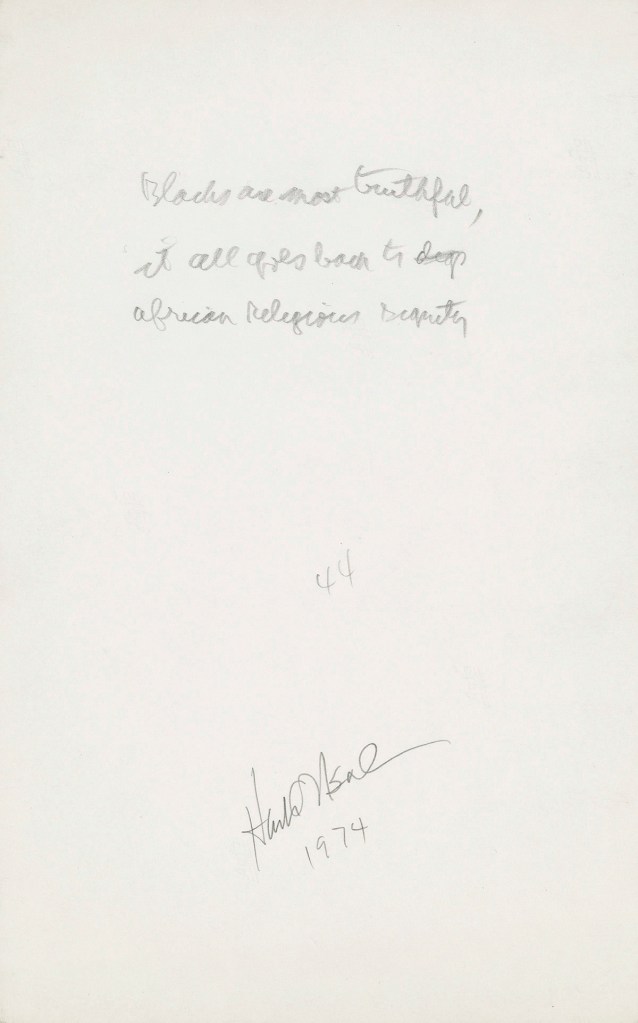 Blacks are most truthful,
it all goes back to deep
african Religious Dignity
44
1974